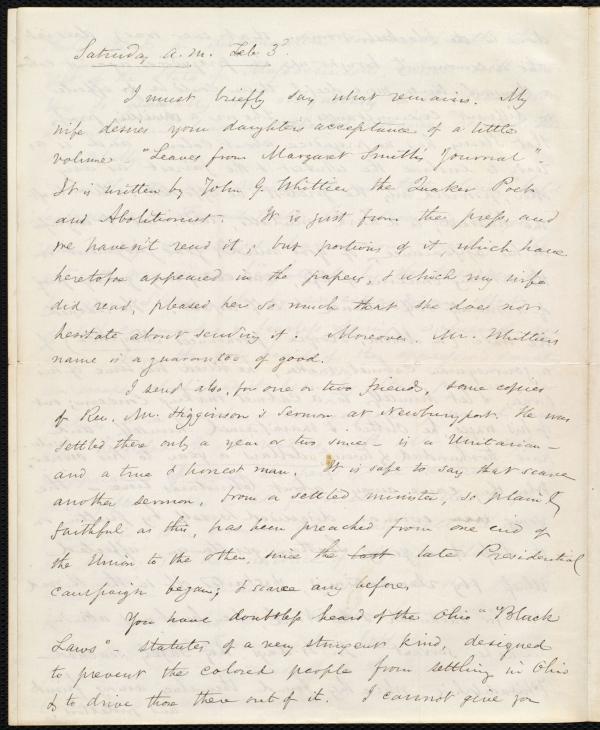 Saturday a.m. Feb 3d.
I must briefly say what remains. My
wife desires your daughter's acceptance of a little
volume - "Leaves from Margaret Smith's Journal".
It is written by John G. Whittier the Quaker Poet
and Abolitionist. It is just from the press, and
we haven't read it; but portions of it, which have
heretofore appeared in the papers, & which my wife
did read, pleased her so much that she does not
hesitate about sending it. Moreover, Mr. Whittier's
name is a guarantee of good.
I send also, for one or two friends, some copies
of Rev. Mr. Higginson's Sermon at Newburyport. He was
settled there only a year or two since - is a Unitarian -
and a true & honest man. It is safe to say that scarce
another sermon, from a settled minister, so plainly
faithful as this, has been preached from one end of
the Union to the other, since the last late Presidential
campaign began; & scarce any before.
You have doubtless heard of the Ohio "Black
Laws" - statutes of a very stringent kind, designed
to prevent the colored people from settling in Ohio
& to drive those there out of it. I cannot give you